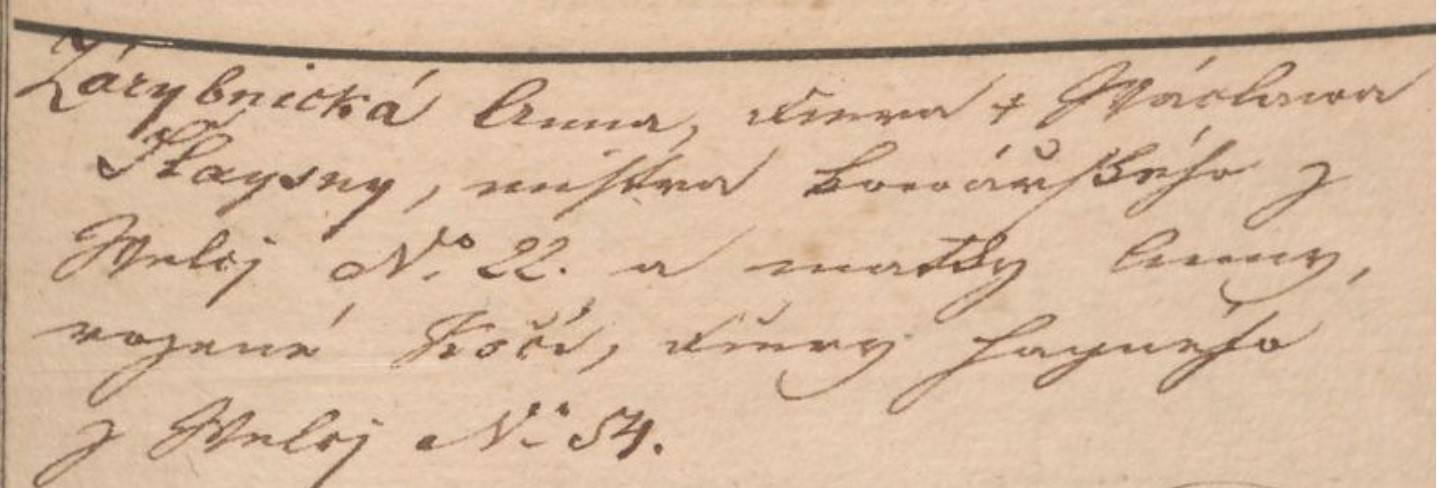 Zárybnická Anna, dcera † Václawa
Šťaysny, mistra kowářského z
Welij N.º 22. a matky Anny,
rozené Kočí, dcery hayného
z Welij Nº 54.